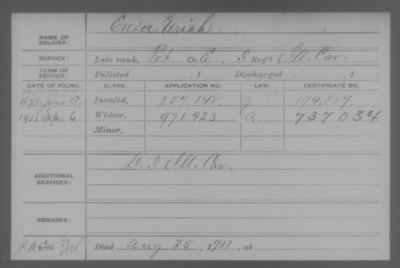 NAME OF SOLDIER: Ensor Uriah
SERVICE: Late rank, Pvt Co. E, 3 Reg't Ill. Cav.
TERM OF SERVICE: Enlisted , 1 Discharged , 1
DATE OF FILING. CLASS. APPLICATION NO. LAW. CERTIFICATE NO.
1878, June Invalid, 257.148 J
1911 Sep. 6 Widow, 971.423 a 737034
Minor,
ADDITIONAL SERVICES: D. 3 Ill. Cav.
REMARKS:
Died Aug 25, 1911, at